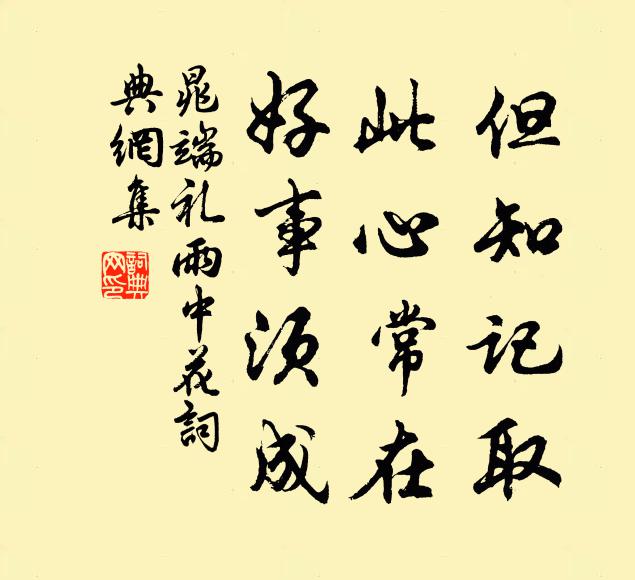 但知记取
此心常在
好事须成
晁端礼雨中花詞
典網集
詞典網印